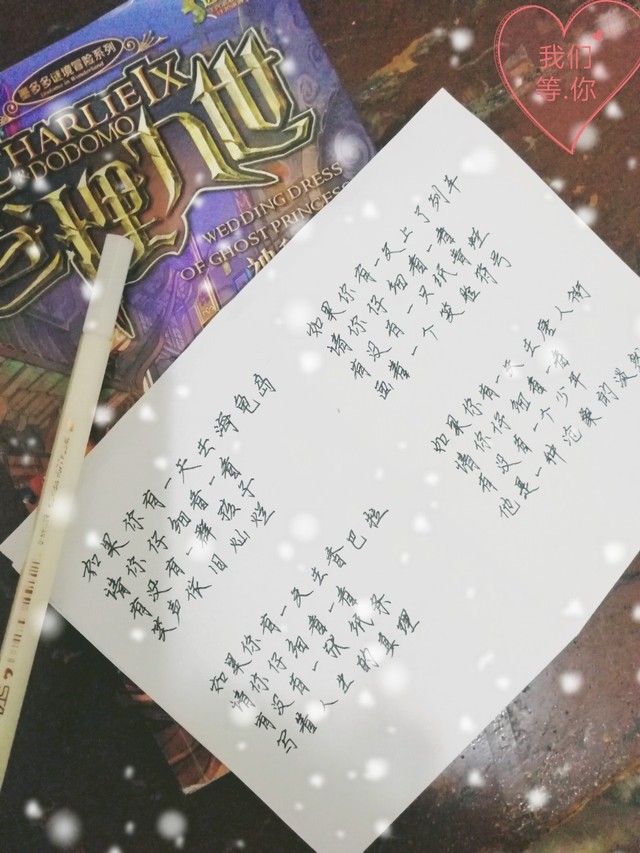 我们
等.你
墨多多谜境冒险系列
CHARLIE IX
& DODOMO
查理九世
WEDDING DRESS
OF GHOST PRINCESS
如果你有一天上了列车
请你仔细看一看
有没有一只纸青蛙
画着一个笑脸符号
如果你有一天去唐人街
请你仔细看一看
有没有一个少年
他是一种沧桑的
如果你有一天去海龟岛
请你仔细看一看
有没有一群孩子
笑声依旧灿烂
如果你有一天去香巴拉
请你仔细看一看
有没有一张纸条
写着人生的真理